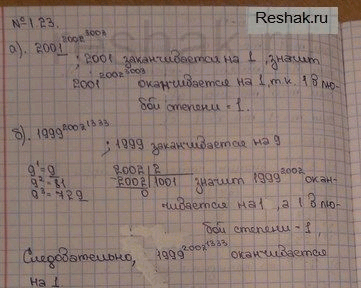 Reshak.ru
№ 1.23.
а). 2001^2002^3003 ; 2001 заканчивается на 1, значит
2001^2002^3003 оканчивается на 1, т.к. 1 в лю-
бой степени = 1.
б). 1999^2002^1333 ; 1999 заканчивается на 9
9¹ = 9
9² = 81
9³ = 729
2002 | 2
-2002 | 1001
0
значит 1999^2002 окан-
чивается на 1, а 1 в лю-
бой степени = 1,
Следовательно, 1999^2002^1333 оканчивается
на 1